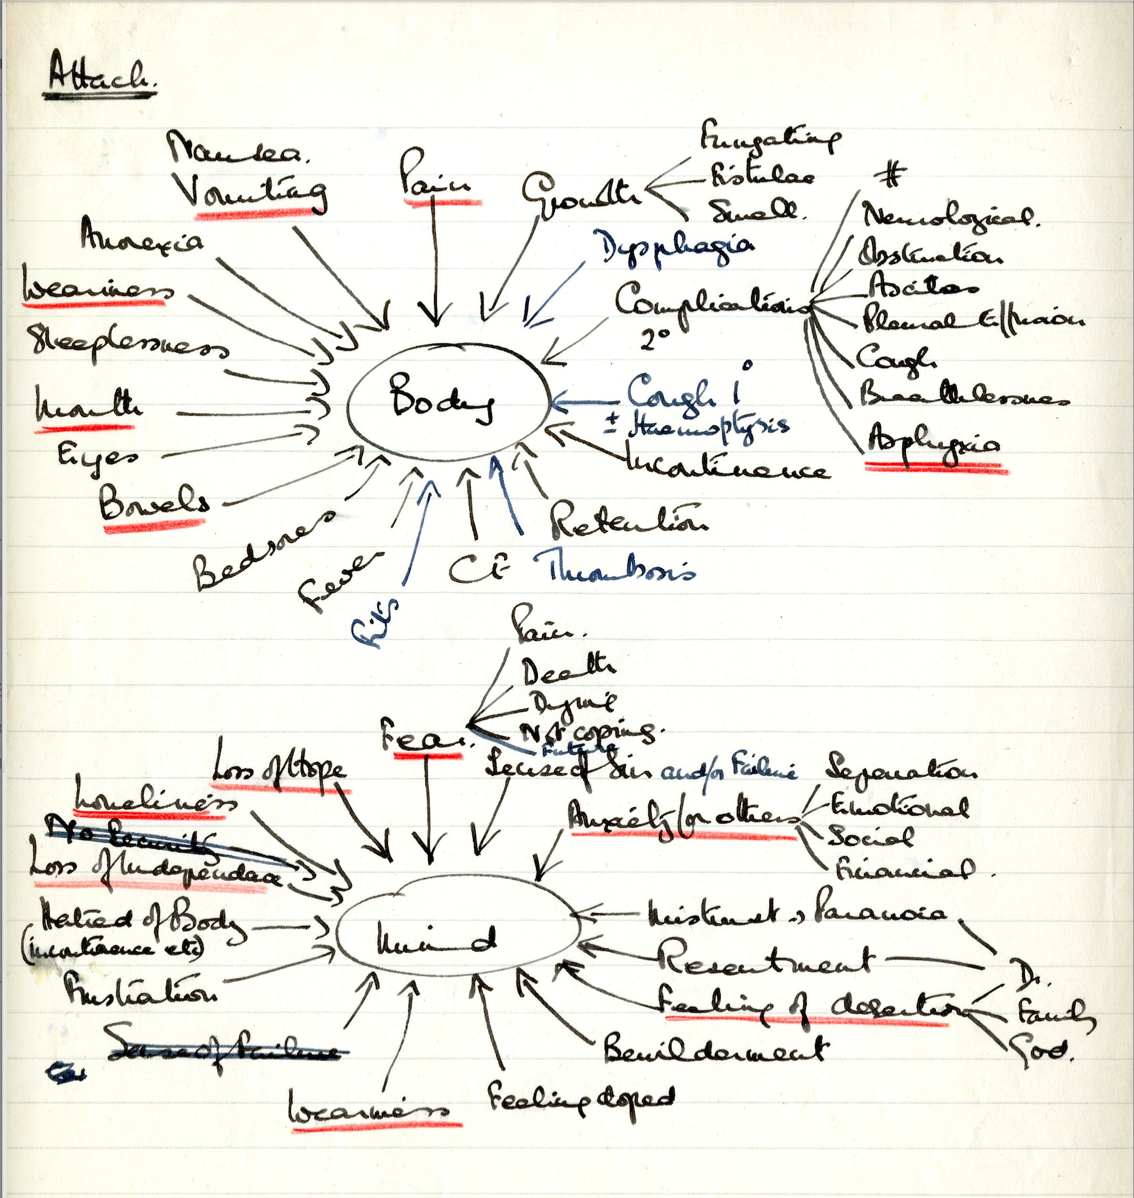 Attach.
Nausea.
Vomiting
Pain
Growth
Fungating
Fistulae
Smell.
#
Neurological.
Obstruction
Ascites
Pleural Effusion
Cough
Breathlessness
Asphyxia
Anorexia
Dysphagia
Weariness
Complications
2°
Sleeplessness
Body
Cough 1°
± Haemoptysis
Mouth
Eyes
Incontinence
Bowels
Retention
Bedsores
Fever
Fits
CF
Thrombosis
Pain.
Death
Dying
Not coping.
Future
Fear.
Sense of Sin and/or Failure
Loss of Hope
Separation
Emotional
Social
Financial.
Loneliness
Anxiety for others
No Security
Loss of Independence
Hatred of Body
(incontinence etc)
Mistrust → Paranoia
Mind
Resentment
Dr.
Family
God.
Frustration
Feeling of desertion
Sense of Failure
Bewilderment
Weariness
Feeling doped